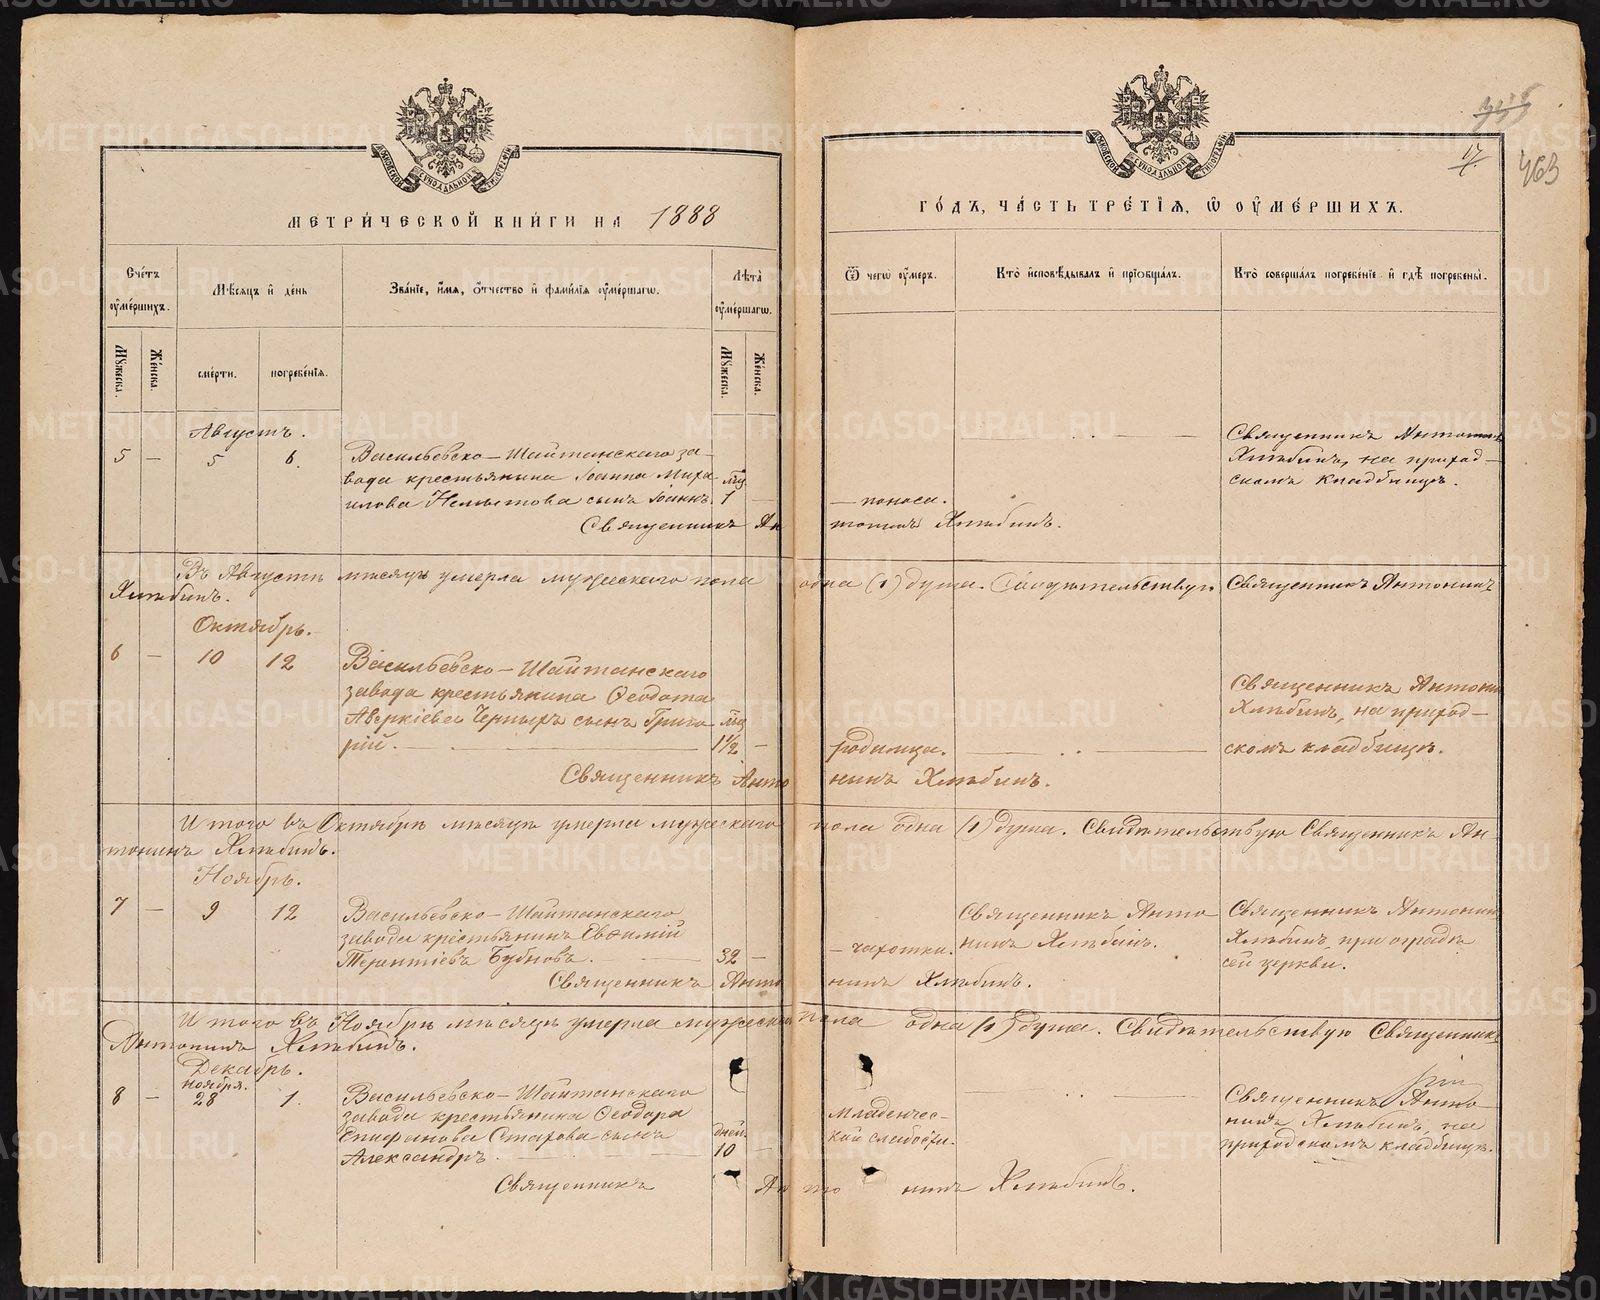 МЕТРИ́ЧЕСКОЙ КНИ́ГИ НА 1888
ГО́ДЪ, ЧА́СТЬ ТРЕ́ТІѦ, Ѿ ОУ҆МЕ́РШИХЪ.
Сче́тъ оу҆ме́ршихъ.
Мѣ́сѧцъ и҆ де́нь
Зва́ніе, и҆́мѧ, ѻ҆́тчество и҆ фами́лїѧ оу҆ме́ршагѡ.
Лѣ́та оу҆ме́ршагѡ.
Ѿ чегѡ̀ оу҆́меръ.
Кто̀ и҆сповѣ́дывалъ и҆ прїѻбща́лъ.
Кто̀ соверша́лъ погребе́нїе и҆ гдѣ̀ погребены̀.
Мꙋ́жеска.
Же́нска.
сме́рти.
погребе́нїѧ.
Мꙋ́жеска.
Же́нска.
17
463
Августъ.
5 — 5 6.
Васильевско-Шайтанскаго за-
вода крестьянина Іоанна Миха
илова сынъ Іоаннъ. мц. 1 —
— поноса.
Священникъ Антонинъ
Хлѣбинъ, на приход-
скомъ кладбищѣ.
Священникъ Антонинъ Хлѣбинъ.
Въ Августѣ мѣсяцѣ умерла мужескаго пола одна (1) душа. Свидѣтельствую Священникъ Антонинъ
Хлѣбинъ.
Октябрь.
6 — 10 12
Васильевско-Шайтанскаго
завода крестьянина Ѳеодота
Аверкіева Черныхъ сынъ Григо
рій. — мц 1½ —
родимца.
Священникъ Антони
Хлѣбинъ, на приход-
скомъ кладбищѣ.
Священникъ Антонинъ Хлѣбинъ.
Итого въ Октябрѣ мѣсяцѣ умерла мужескаго пола одна (1) душа. Свидѣтельствую Священникъ Ан
тонинъ Хлѣбинъ.
Ноябрь.
7 — 9 12
Васильевско-Шайтанскаго
завода крестьянинъ Евѳимій
Терентіевъ Бубновъ. — 32 —
— чахотки.
Священникъ Анто
нинъ Хлѣбинъ.
Священникъ Антонин
Хлѣбинъ, при оградѣ
сей церкви.
Священникъ Антонинъ Хлѣбинъ.
Итого въ Ноябрѣ мѣсяцѣ умерла мужеска пола одна (1) душа. Свидѣтельствую Священникъ
Антонинъ Хлѣбинъ.
Декабрь.
8 — ноября. 28 1.
Васильевско-Шайтанскаго
завода крестьянина Ѳеодора
Епифанова Старова сынъ
Александръ дней. 10 —
Младенчес-
кой слабости.
Священникъ Анто
нинъ Хлѣбинъ, на
приходскомъ кладбищѣ.
Священникъ Антонинъ Хлѣбинъ.
METRIKI.GASO-URAL.RU